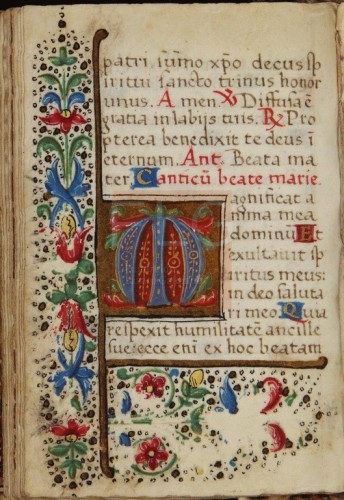 patri summo xpo decus sp
iritui sancto trinus honor
unus. Amen ℣ Diffusa ē
gratia in labijs tuis. ℟ Pro
pterea benedixit te deus ī
eternum. Ant. Beata ma
ter Canticū beate marie.
Magnificat a
nima mea
dominū Et
exultavit sp
iritus meus:
in deo saluta
ri meo. Quia
respexit humilitatē ancille
sue: ecce enī ex hoc beatam